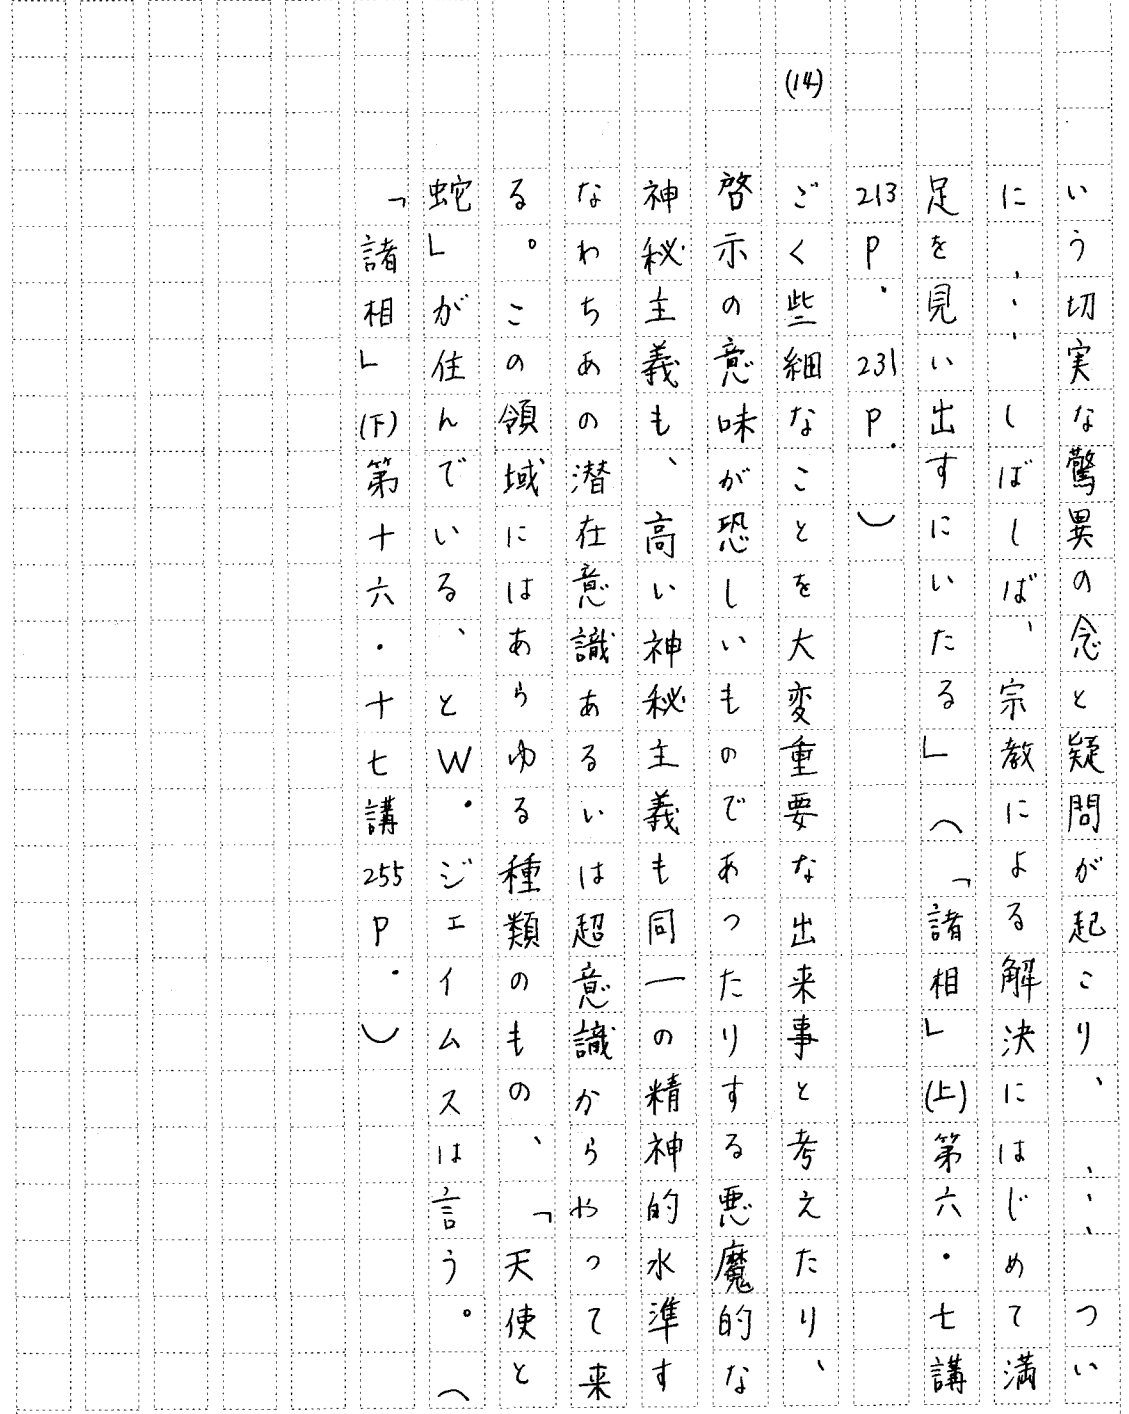 いう切実な驚異の念と疑問が起こり、……つい
に……しばしば、宗教による解決にはじめて満
足を見い出すにいたる」（「諸相」(上)第六・七講
213P. 231P.）
(14)ごく些細なことを大変重要な出来事と考えたり、
啓示の意味が恐しいものであったりする悪魔的な
神秘主義も、高い神秘主義も同一の精神的水準す
なわちあの潜在意識あるいは超意識からやって来
る。この領域にはあらゆる種類のもの、「天使と
蛇」が住んでいる、とW.ジェイムスは言う。（
「諸相」(下)第十六・十七講255P.）